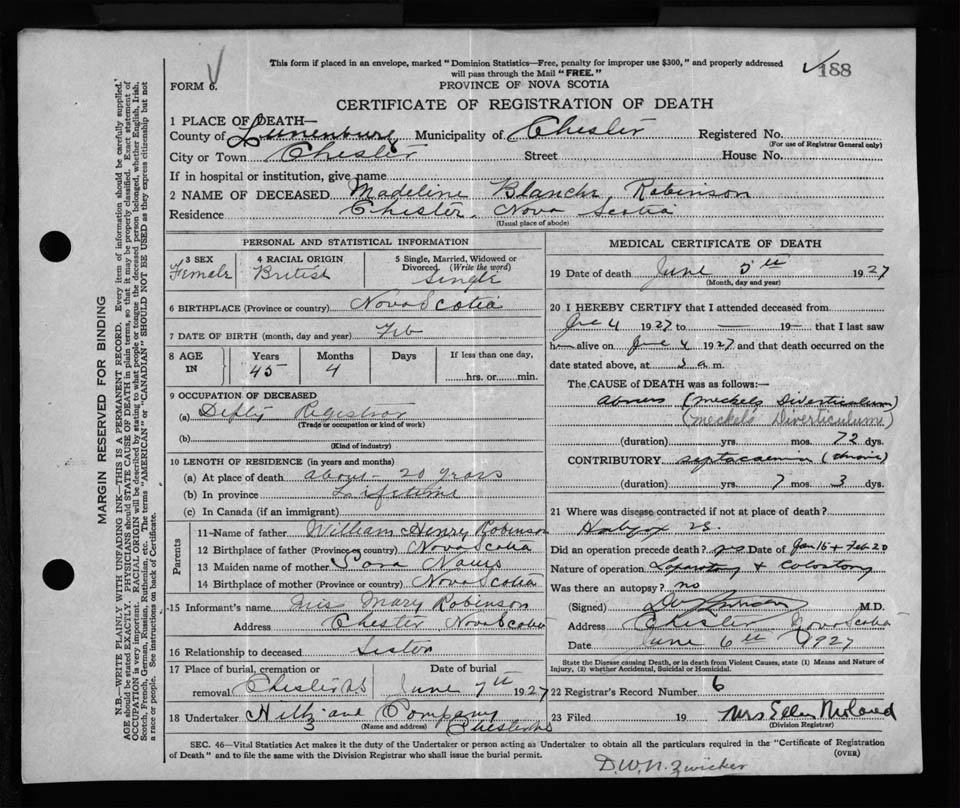 This form if placed in an envelope, marked "Dominion Statistics—Free, penalty for improper use $300," and properly addressed
will pass through the Mail "FREE."
188
FORM 6.
PROVINCE OF NOVA SCOTIA
CERTIFICATE OF REGISTRATION OF DEATH
1 PLACE OF DEATH—
County of Lunenburg Municipality of Chester Registered No.
(For use of Registrar General only)
City or Town Chester Street House No.
If in hospital or institution, give name
2 NAME OF DECEASED Madeline Blanche Robinson
Residence Chester. Nova Scotia
(Usual place of abode)
PERSONAL AND STATISTICAL INFORMATION
3 SEX
Female
4 RACIAL ORIGIN
British
5 Single, Married, Widowed or
Divorced (Write the word)
Single
6 BIRTHPLACE (Province or country) Nova Scotia
7 DATE OF BIRTH (month, day and year) Feb
8 AGE IN
Years Months Days If less than one day,
45 4 hrs. or min.
9 OCCUPATION OF DECEASED
(a) Registrar
(Trade or occupation or kind of work)
(b)
(Kind of industry)
10 LENGTH OF RESIDENCE (in years and months)
(a) At place of death about 20 years
(b) In province Lifetime
(c) In Canada (if an immigrant)
Parents
11 Name of father William Henry Robinson
12 Birthplace of father (Province or country) Nova Scotia
13 Maiden name of mother
14 Birthplace of mother (Province or country) Nova Scotia
15 Informant's name Mary Robinson
Address Chester Nova Scotia
16 Relationship to deceased Sister
17 Place of burial, cremation or
removal Chester NS
Date of burial
June 7th 1927
18 Undertaker Company
(Name and address) Chester NS
MEDICAL CERTIFICATE OF DEATH
19 Date of death June 5th 1927
(Month, day and year)
20 I HEREBY CERTIFY that I attended deceased from
4 1927 to — 19— that I last saw
h alive on June 4 1927 and that death occurred on the
date stated above, at a m.
The CAUSE OF DEATH was as follows:—
(Meckels Diverticulum)
(Meckel's Diverticulum)
(duration) yrs. mos. 72 dys.
CONTRIBUTORY septacaemia (chronic)
(duration) yrs. 7 mos. 3 dys.
21 Where was disease contracted if not at place of death?
Did an operation precede death? yes Date of Jan 15 + Feb 20
Nature of operation Laparotomy + Colostomy
Was there an autopsy? no
(Signed) M.D.
Address Chester Nova Scotia
Date June 6th 1927
State the Disease causing Death, or in death from Violent Causes, state (1) Means and Nature of
Injury, (2) whether Accidental, Suicidal or Homicidal.
22 Registrar's Record Number 6
23 Filed 19 Mrs Ellen
(Division Registrar)
SEC. 46—Vital Statistics Act makes it the duty of the Undertaker or person acting as Undertaker to obtain all the particulars required in the "Certificate of Registration
of Death" and to file the same with the Division Registrar who shall issue the burial permit.
(OVER)
D.W.N. Zwicker
MARGIN RESERVED FOR BINDING
N.B.—WRITE PLAINLY WITH UNFADING INK—THIS IS A PERMANENT RECORD. Every item of information should be carefully supplied.
AGE should be stated EXACTLY. PHYSICIANS should STATE CAUSE OF DEATH in plain terms, so that it may be properly classified. Exact statement of
OCCUPATION is very important. RACIAL ORIGIN will be described by stating to what people or tongue the deceased person belonged, whether English, Irish,
Scotch, French, German, Russian, Ruthenian, etc. The terms "AMERICAN" or "CANADIAN" SHOULD NOT BE USED as they express citizenship but not
a race or people. See instructions on back of Certificate.